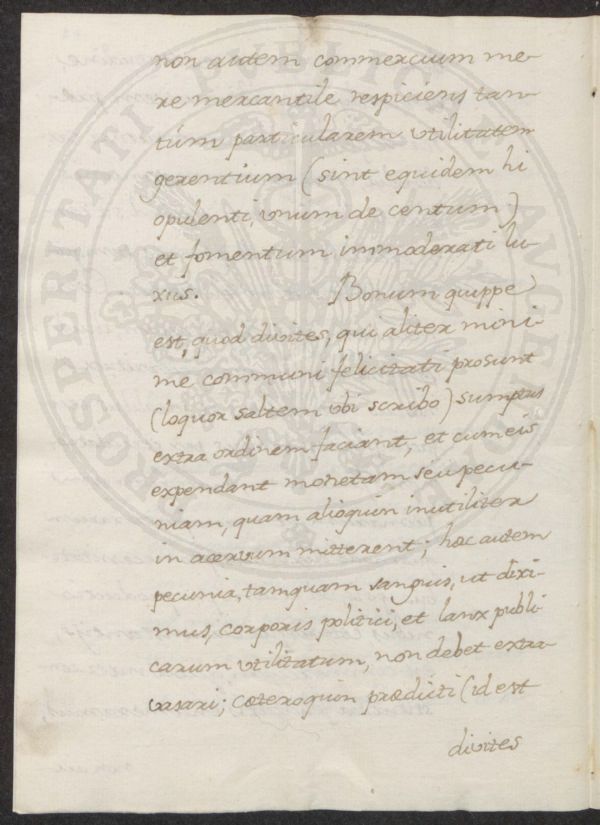 non autem commercium me-
re mercantile respiciens tan-
tùm particularem utilitatem
gerentium (sint equidem hi
opulenti, unum de centum)
et fomentum immoderati lu-
xus. Bonum quippe
est, quod divites, qui aliter mini-
me communi felicitati prosunt
(loquor saltem ubi scribo) sumptus
extra ordinem faciant, et cum eis
expendant monetam seu pecu-
niam, quam alioquin inutiliter
in acervum mitterent; hæc autem
pecunia, tamquam sanguis, ut dixi-
mus, corporis politici, et lanx publi-
carum utilitatum, non debet extra
vasari; cæteroquin prædicti (id est
divites
PROSPERITATI PVBLICAE AVGENDAE